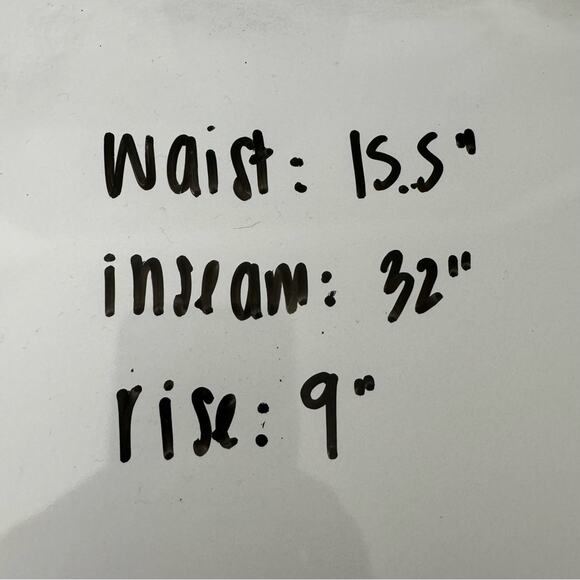 waist: 15.5"
inseam: 32"
rise: 9"